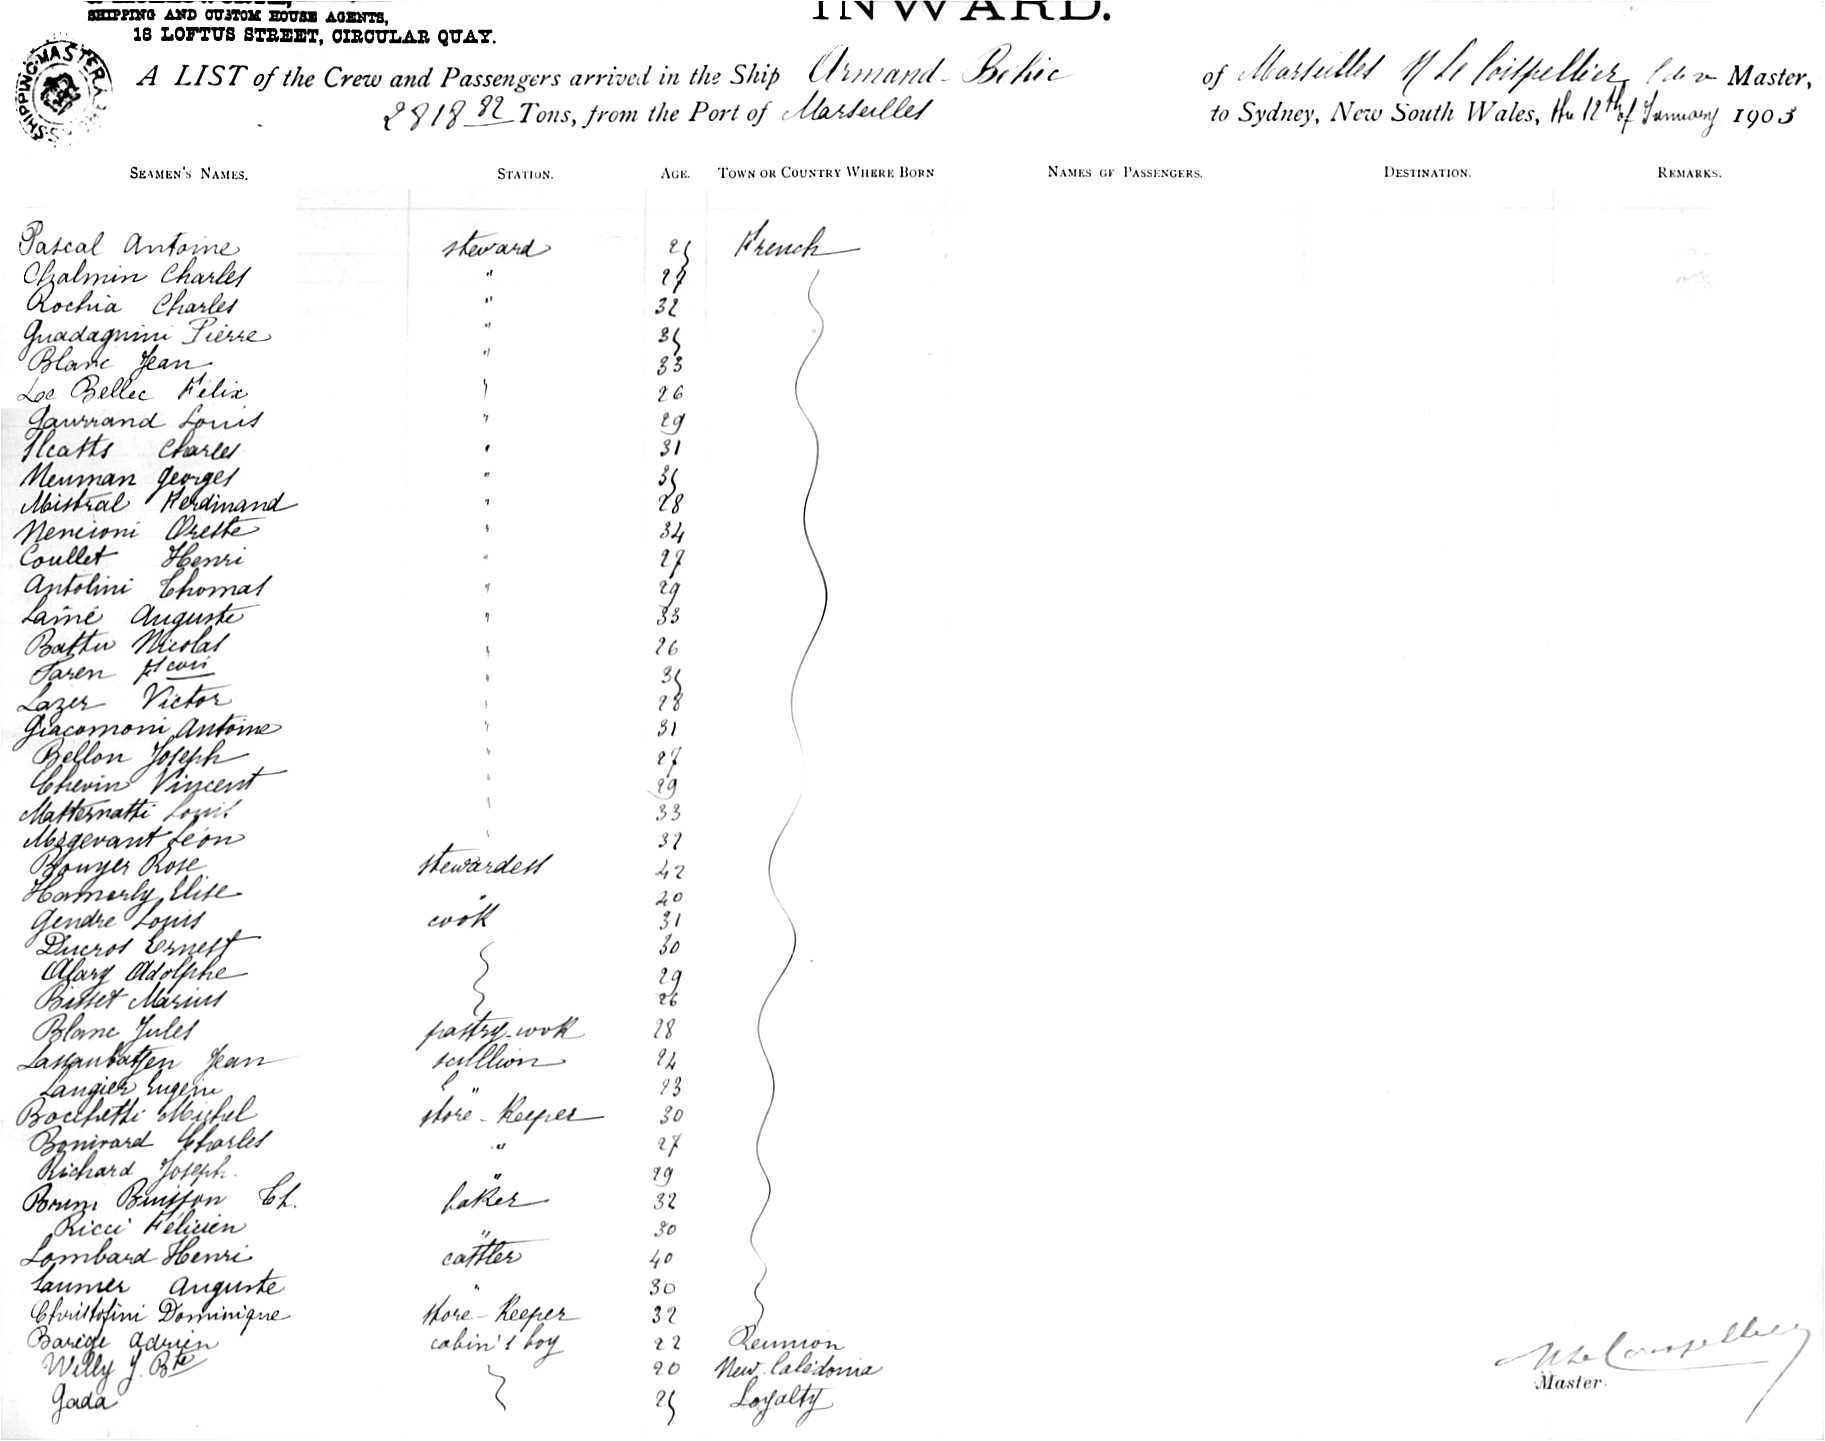 SHIPPING AND CUSTOM HOUSE AGENTS,
18 LOFTUS STREET, CIRCULAR QUAY.
INWARD.
SHIPPING MASTER
A LIST of the Crew and Passengers arrived in the Ship Armand-Béhic of Marseilles Master,
2818 82 Tons, from the Port of Marseilles to Sydney, New South Wales, the 12th of January 1903
SEAMEN'S NAMES. STATION. AGE. TOWN OR COUNTRY WHERE BORN NAMES OF PASSENGERS. DESTINATION. REMARKS.
Pascal Antoine steward 25 French
Chalmin Charles " 27
Rochia Charles " 32
Guadagnini Pierre " 35
Blanc Jean " 33
Le Bellec Félix " 26
Gaurrand Louis " 29
Charles " 31
Neuman Georges " 35
Mistral Ferdinand " 28
Nencioni Oreste " 34
Coullet Henri " 27
Antolini Thomas " 29
Lainé Auguste " 33
Battu Nicolas " 26
Faren " 35
Lazer Victor " 28
Giacomoni Antoine " 31
Bellon Joseph " 27
Thevin Vincent " 29
Matternatti Louis " 33
Mégevant Léon " 32
Bouyer Rose stewardess 42
Hamerly Elise " 40
Gendre Louis cook 31
Ducros Ernest 30
Alary Adolphe 29
Bisset Marius 26
Blanc Jules pastry-cook 28
Jean scullion 24
Laugier Eugène " 23
Bocchetti Michel store-keeper 30
Bonivard Charles " 27
Richard Joseph " 29
Brun Buisson Ch. baker 32
Ricci Félicien " 30
Lombard Henri cattler 40
Launier Auguste " 30
Christofini Dominique store-keeper 32
Barège Adrien cabin's boy 22 Reunion
Willy J. Bte 20 New Caledonia
Gada 25 Loyalty
Master.